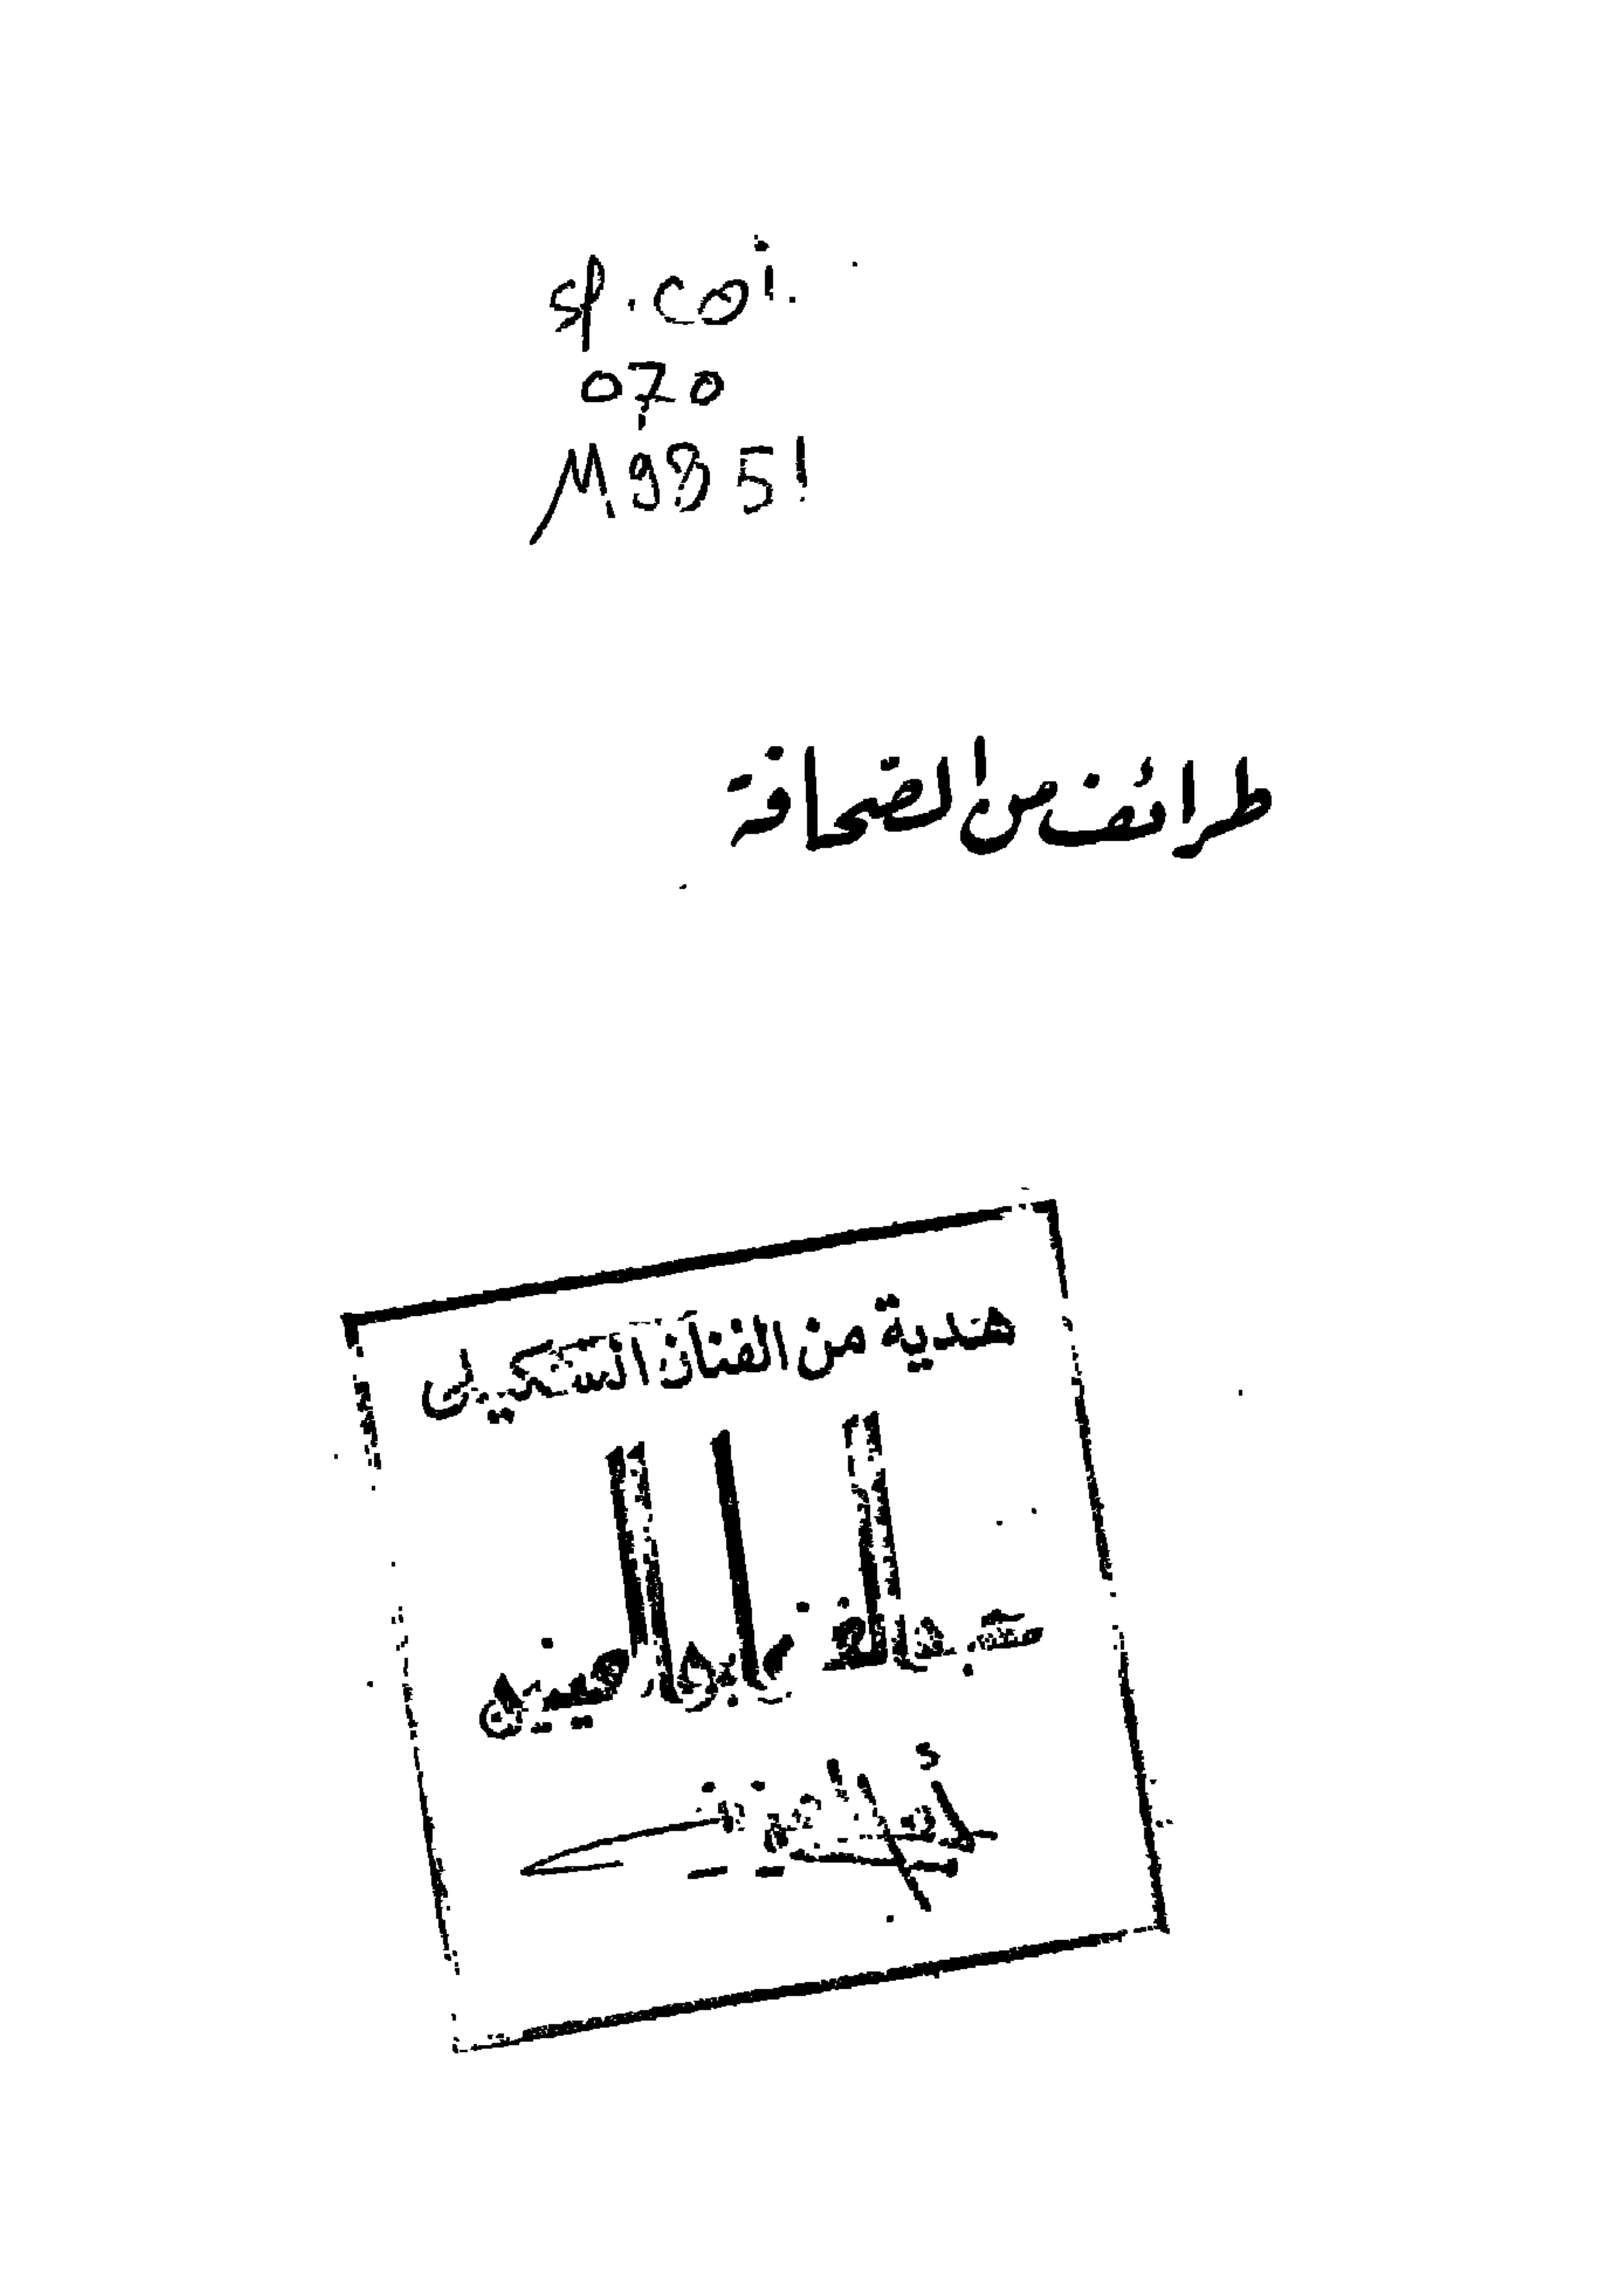 sp.coi.
070
M985!
طرائف من الصحافة
هدية من الفنان التشكيلى
أبو العينين